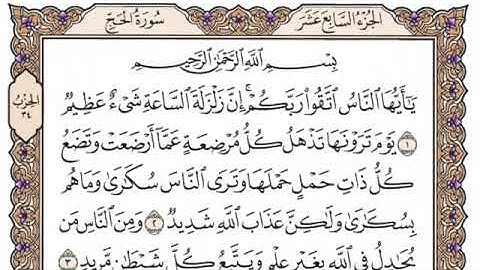 الجزء السابع عشر
سورة الحج
الحزب
٣٤
بِسْمِ ٱللَّهِ ٱلرَّحْمَٰنِ ٱلرَّحِيمِ
يَٰٓأَيُّهَا ٱلنَّاسُ ٱتَّقُوا۟ رَبَّكُمْ ۚ إِنَّ زَلْزَلَةَ ٱلسَّاعَةِ شَىْءٌ عَظِيمٌ
١ يَوْمَ تَرَوْنَهَا تَذْهَلُ كُلُّ مُرْضِعَةٍ عَمَّآ أَرْضَعَتْ وَتَضَعُ
كُلُّ ذَاتِ حَمْلٍ حَمْلَهَا وَتَرَى ٱلنَّاسَ سُكَٰرَىٰ وَمَا هُم
بِسُكَٰرَىٰ وَلَٰكِنَّ عَذَابَ ٱللَّهِ شَدِيدٌ ٢ وَمِنَ ٱلنَّاسِ مَن
يُجَٰدِلُ فِى ٱللَّهِ بِغَيْرِ عِلْمٍ وَيَتَّبِعُ كُلَّ شَيْطَٰنٍ مَّرِيدٍ ٣